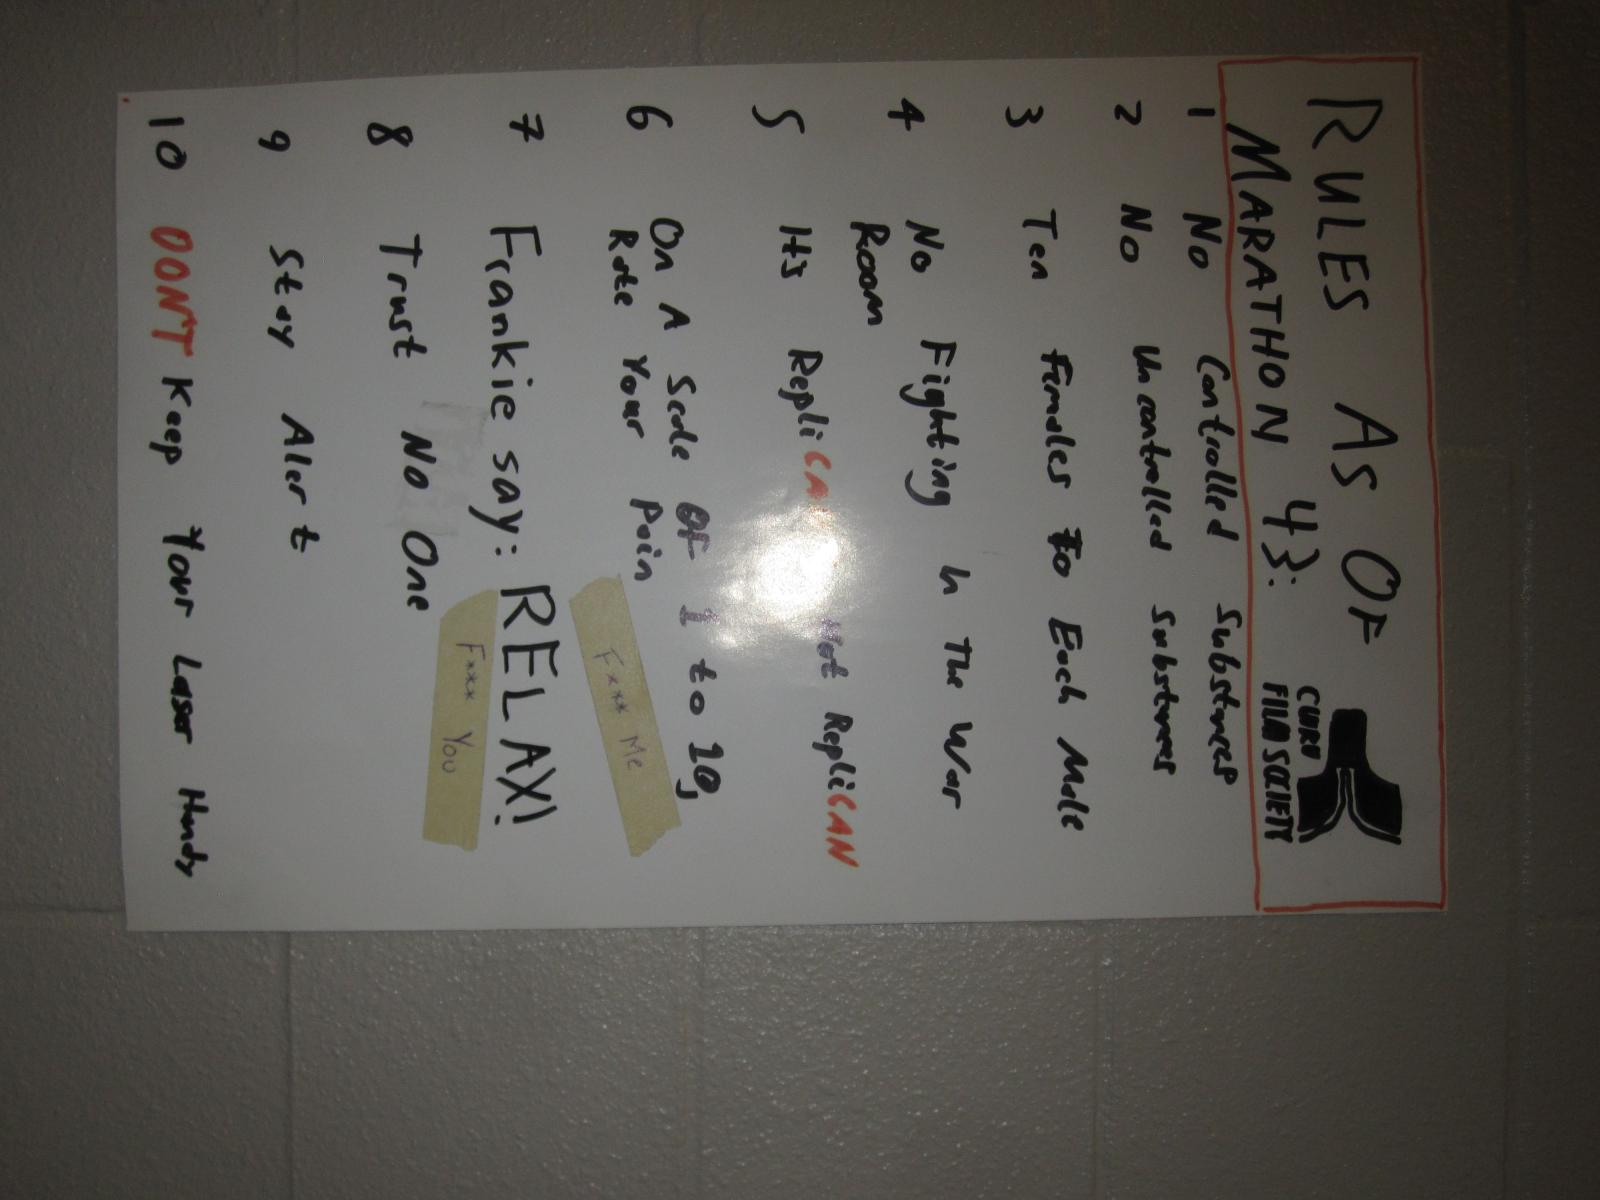 RULES AS OF
MARATHON 43:
CWRU
FILM SOCIETY
1 No Controlled Substances
2 No Uncontrolled Substances
3 Ten Females To Each Male
4 No Fighting In The War
Room
5 It's RepliCAN Not RepliCAN
6 On A Scale Of 1 to 10,
Rate Your Pain
F*** Me
7 Frankie say: RELAX!
F*** You
8 Trust No One
9 Stay Alert
10 DON'T Keep Your Laser Handy